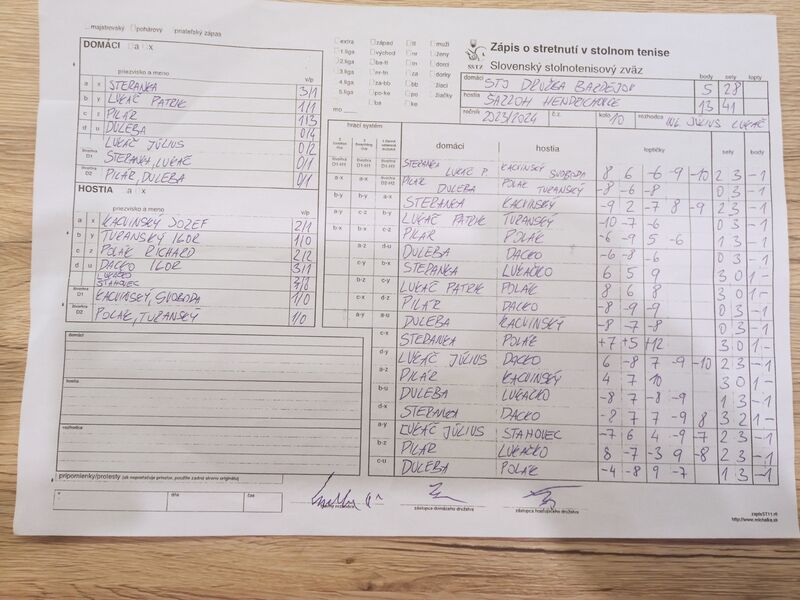 majstrovský pohárový priateľský zápas
DOMÁCI a x
priezvisko a meno v/p
a x STERANKA 3/1
b y LUKÁČ PATRIK 1/1
c z PILÁR 1/3
d u DULEBA 0/4
LUKÁČ JÚLIUS 0/2
štvorhra D1 STERANKA, LUKÁČ 0/1
štvorhra D2 PILÁR, DULEBA 0/1
HOSTIA a x
priezvisko a meno v/p
a x KACVINSKÝ JOZEF 2/1
b y TURANSKÝ IGOR 1/0
c z POLÁK RICHARD 2/2
d u DACKO IGOR 3/1
LUKAČKO
STAHOVEC
štvorhra D1 KACVINSKÝ, SVOBODA 1/0
štvorhra D2 POLÁK, TURANSKÝ 1/0
domáci
hostia
rozhodca
pripomienky/protesty (ak nepostačuje priestor, použite zadnú stranu originálu)
v dňa čas
extra západ muži
1.liga východ ženy
2.liga ba-tt dorci
3.liga nr-tn dorky
4.liga za-bb žiaci
5.liga po-ke žiačky
mo
SSTZ
Zápis o stretnutí v stolnom tenise
Slovenský stolnotenisový zväz
body sety lopty
domáci STJ DRUŽBA BARDEJOV 5 28
hostia ŠAZZOH HENDRICHOVCE 13 41
ročník 2023/2024 č.z. kolo 10 rozhodca ING. JÚLIUS LUKÁČ
hrací systém domáci hostia loptičky sety body
STERANKA LUKÁČ P. KACVINSKÝ SVOBODA 8 6 -6 -9 -10 2 3 -1
a-x PILÁR DULEBA POLÁK TURANSKÝ -8 -6 -8 0 3 -1
b-y a-x STERANKA KACVINSKÝ -9 2 -7 8 -9 2 3 -1
a-y c-z b-y LUKÁČ PATRIK TURANSKÝ -10 -7 -6 0 3 -1
b-x b-x c-z PILÁR POLÁK -6 -9 5 -6 1 3 -1
a-z d-u DULEBA DACKO -6 -8 -6 0 3 -1
c-y b-x STERANKA LUKAČKO 6 5 9 3 0 1 -
b-z c-y LUKÁČ PATRIK POLÁK 8 6 8 3 0 1 -
c-x d-z PILÁR DACKO -8 -9 -9 0 3 -1
a-y a-u DULEBA KACVINSKÝ -8 -7 -8 0 3 -1
c-x STERANKA POLÁK +7 +5 +12 3 0 1 -
d-y LUKÁČ JÚLIUS DACKO 6 -8 7 -9 -10 2 3 -1
a-z PILÁR KACVINSKÝ 4 7 10 3 0 1 -
b-u DULEBA LUKAČKO -8 7 -8 -9 1 3 -1
d-x STERANKA DACKO -8 7 7 -9 8 3 2 1 -
a-y LUKÁČ JÚLIUS STAHOVEC -7 6 4 -9 -7 2 3 -1
b-z PILÁR LUKAČKO 8 -7 -3 9 -8 2 3 -1
c-u DULEBA POLÁK -4 -8 9 -7 1 3 -1
zástupca domáceho družstva zástupca hosťujúceho družstva
zapisST11.rtf
http://www.michalka.sk